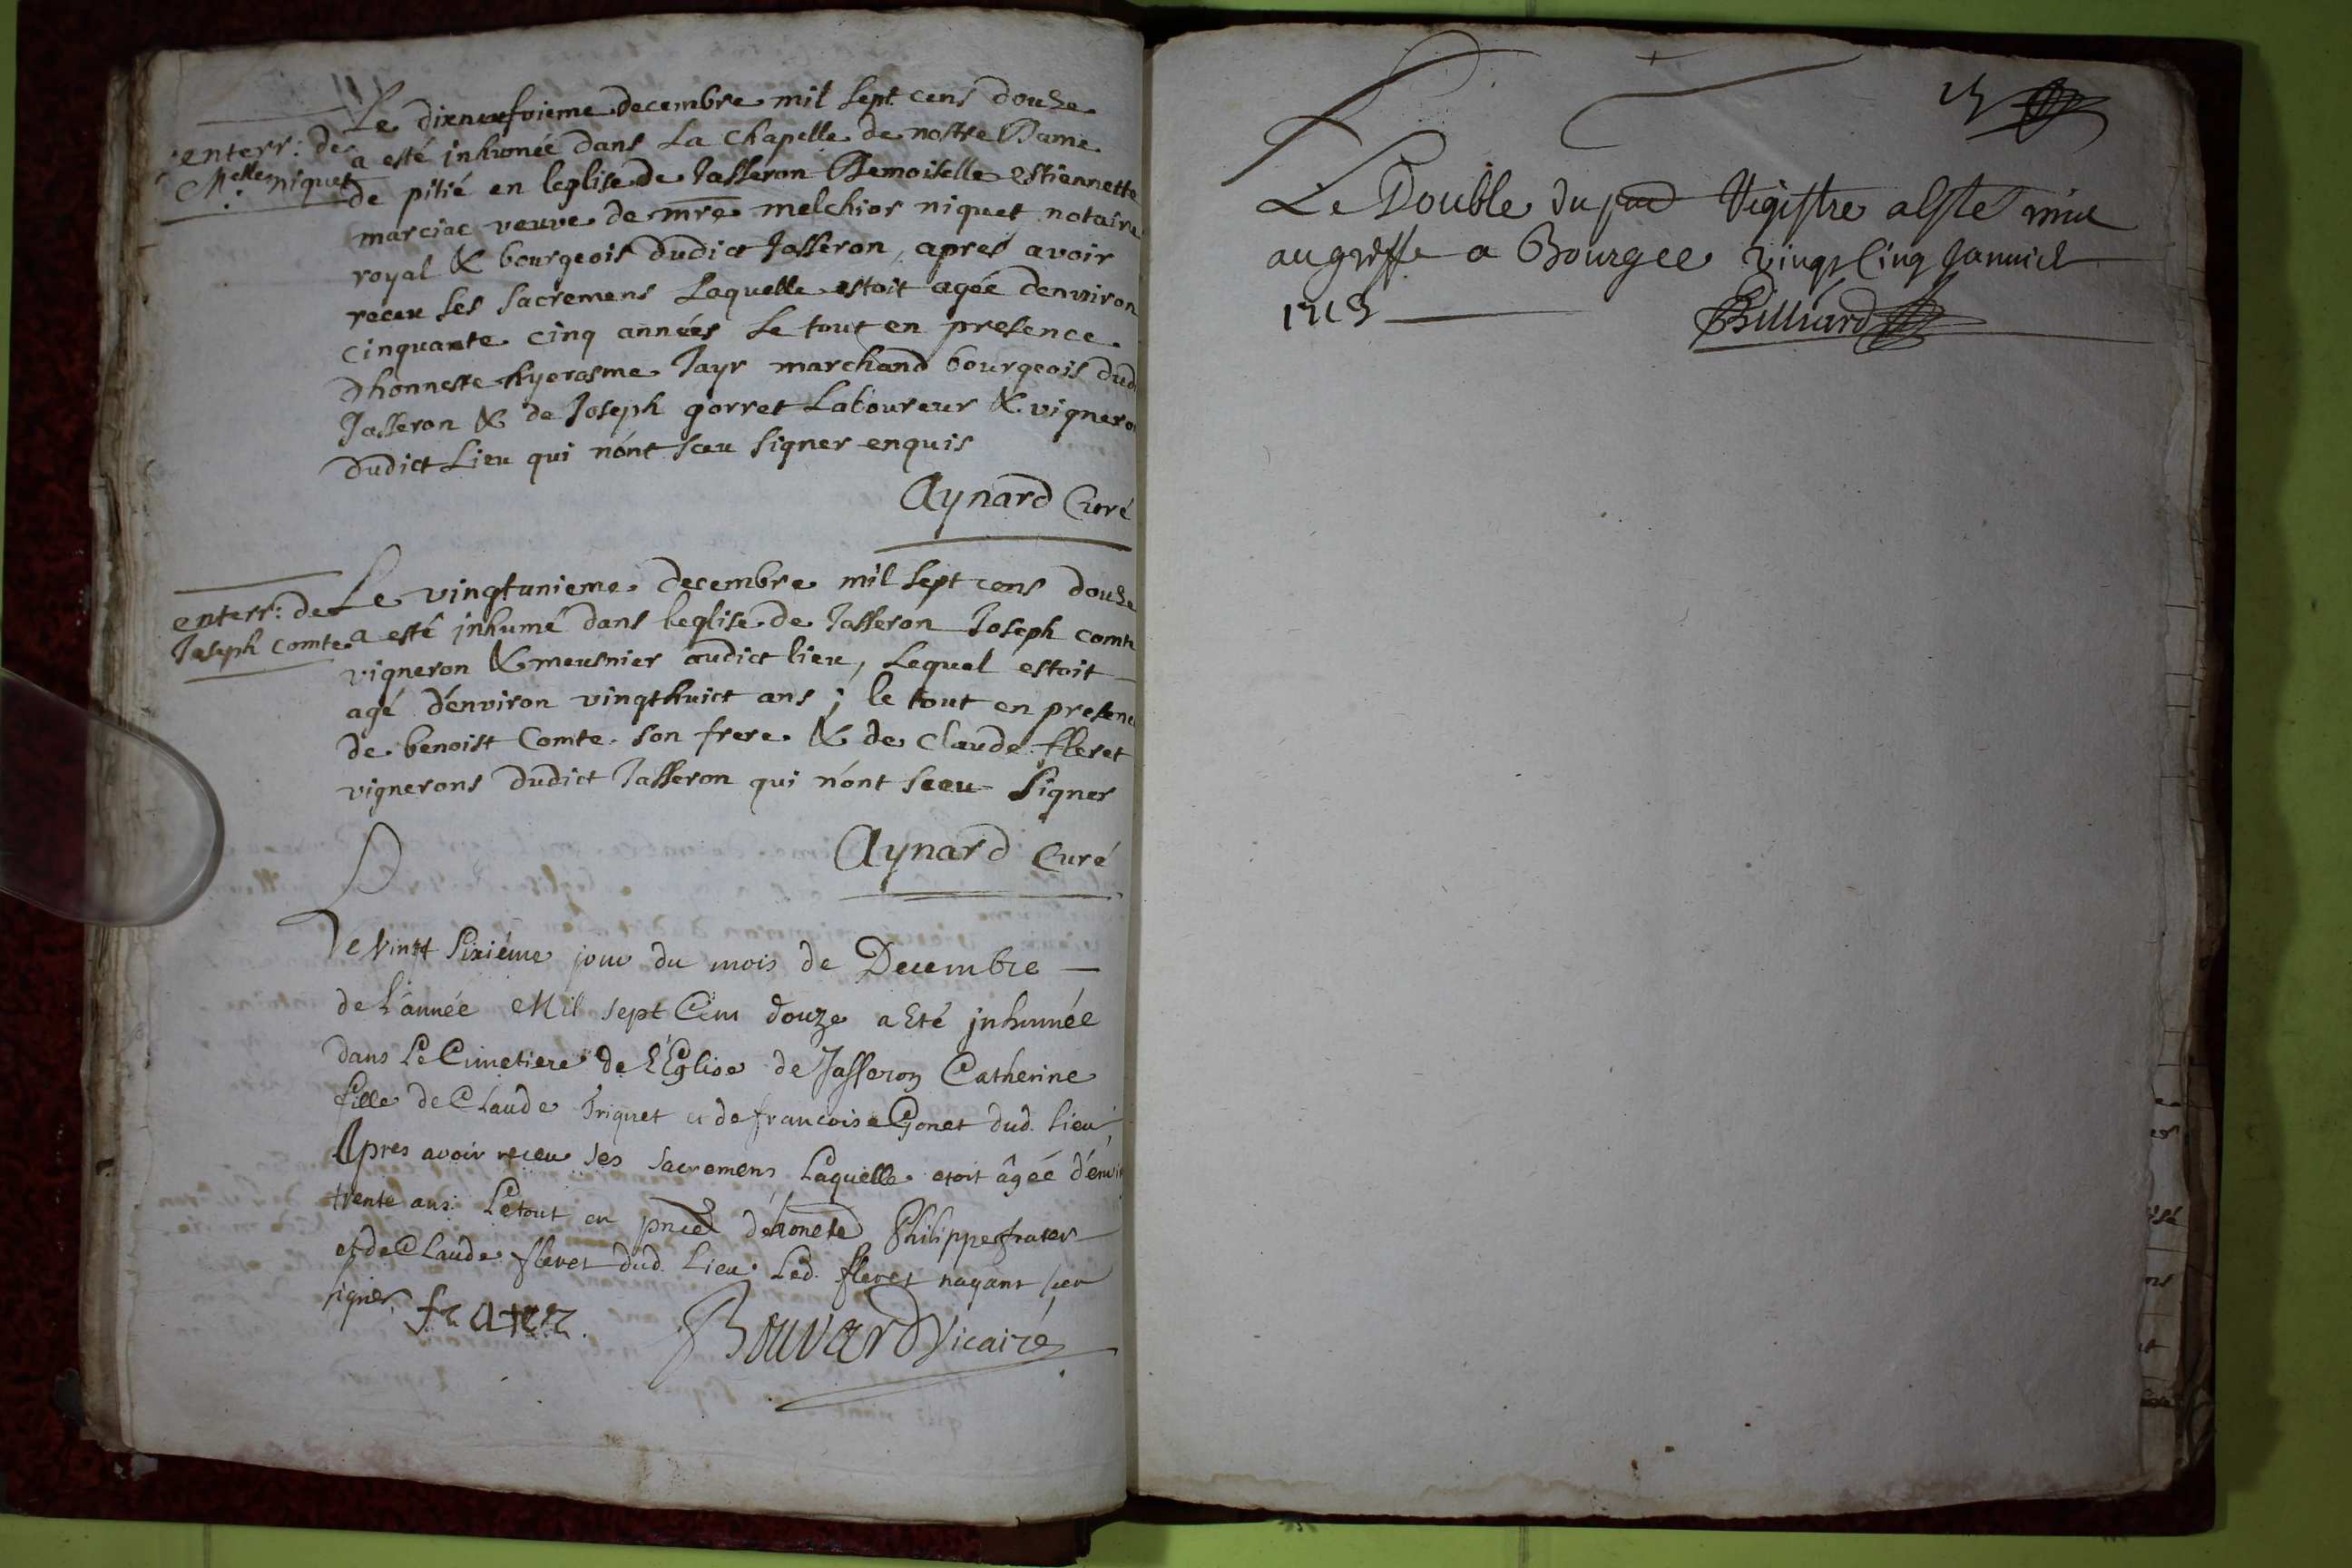 Le dixneufvieme decembre mil sept cens douze
enterr: de
Melle niquet
a esté inhumée dans La chapelle de nostre Dame
de pitié en leglise de Jasseron Demoiselle estiennette
marciac veuve de mre melchior niquet notaire
royal & bourgeois dudict Jasseron, apres avoir
receu ses sacremens Laquelle estoit agée denviron
cinquante cinq années Le tout en presence
dhonneste hyerosme Jayr marchand bourgeois dud
Jasseron & de Joseph gorret Laboureur & vigneron
dudict Lieu qui nónt sceu signer enquis
Aynard Curé
enterr: de
Joseph comte
Le vingtunieme decembre mil sept cens douze
a esté inhumé dans leglise de Jasseron Joseph comte
vigneron & meusnier audict lieu, Lequel estoit
agé dénviron vingthuict ans; le tout en presence
de benoist Comte son frere & de Claude fleret
vignerons dudict Jasseron qui nónt sceu signer
Aynard Curé
Le vingt sixiéme jour du mois de Decembre
de l'année Mil sept Cens douze a Eté inhumée
dans Le Cimetiere de l'Eglise de Jasseron Catherine
fille de Claude et de francoise Gonet dud. lieu,
Apres avoir receu ses sacremens Laquelle etoit âgée d'env
trente ans: Le tout en pnce d'honete Philippe frater
et de Claude fleret dud. Lieu. Led. fleret nayant sceu
signer. frater. Bouvard vicaire
Le Double du pnt Registre a Este mis
au greffe a Bourg ce vingt Cinq Janvier
1713
Billiard